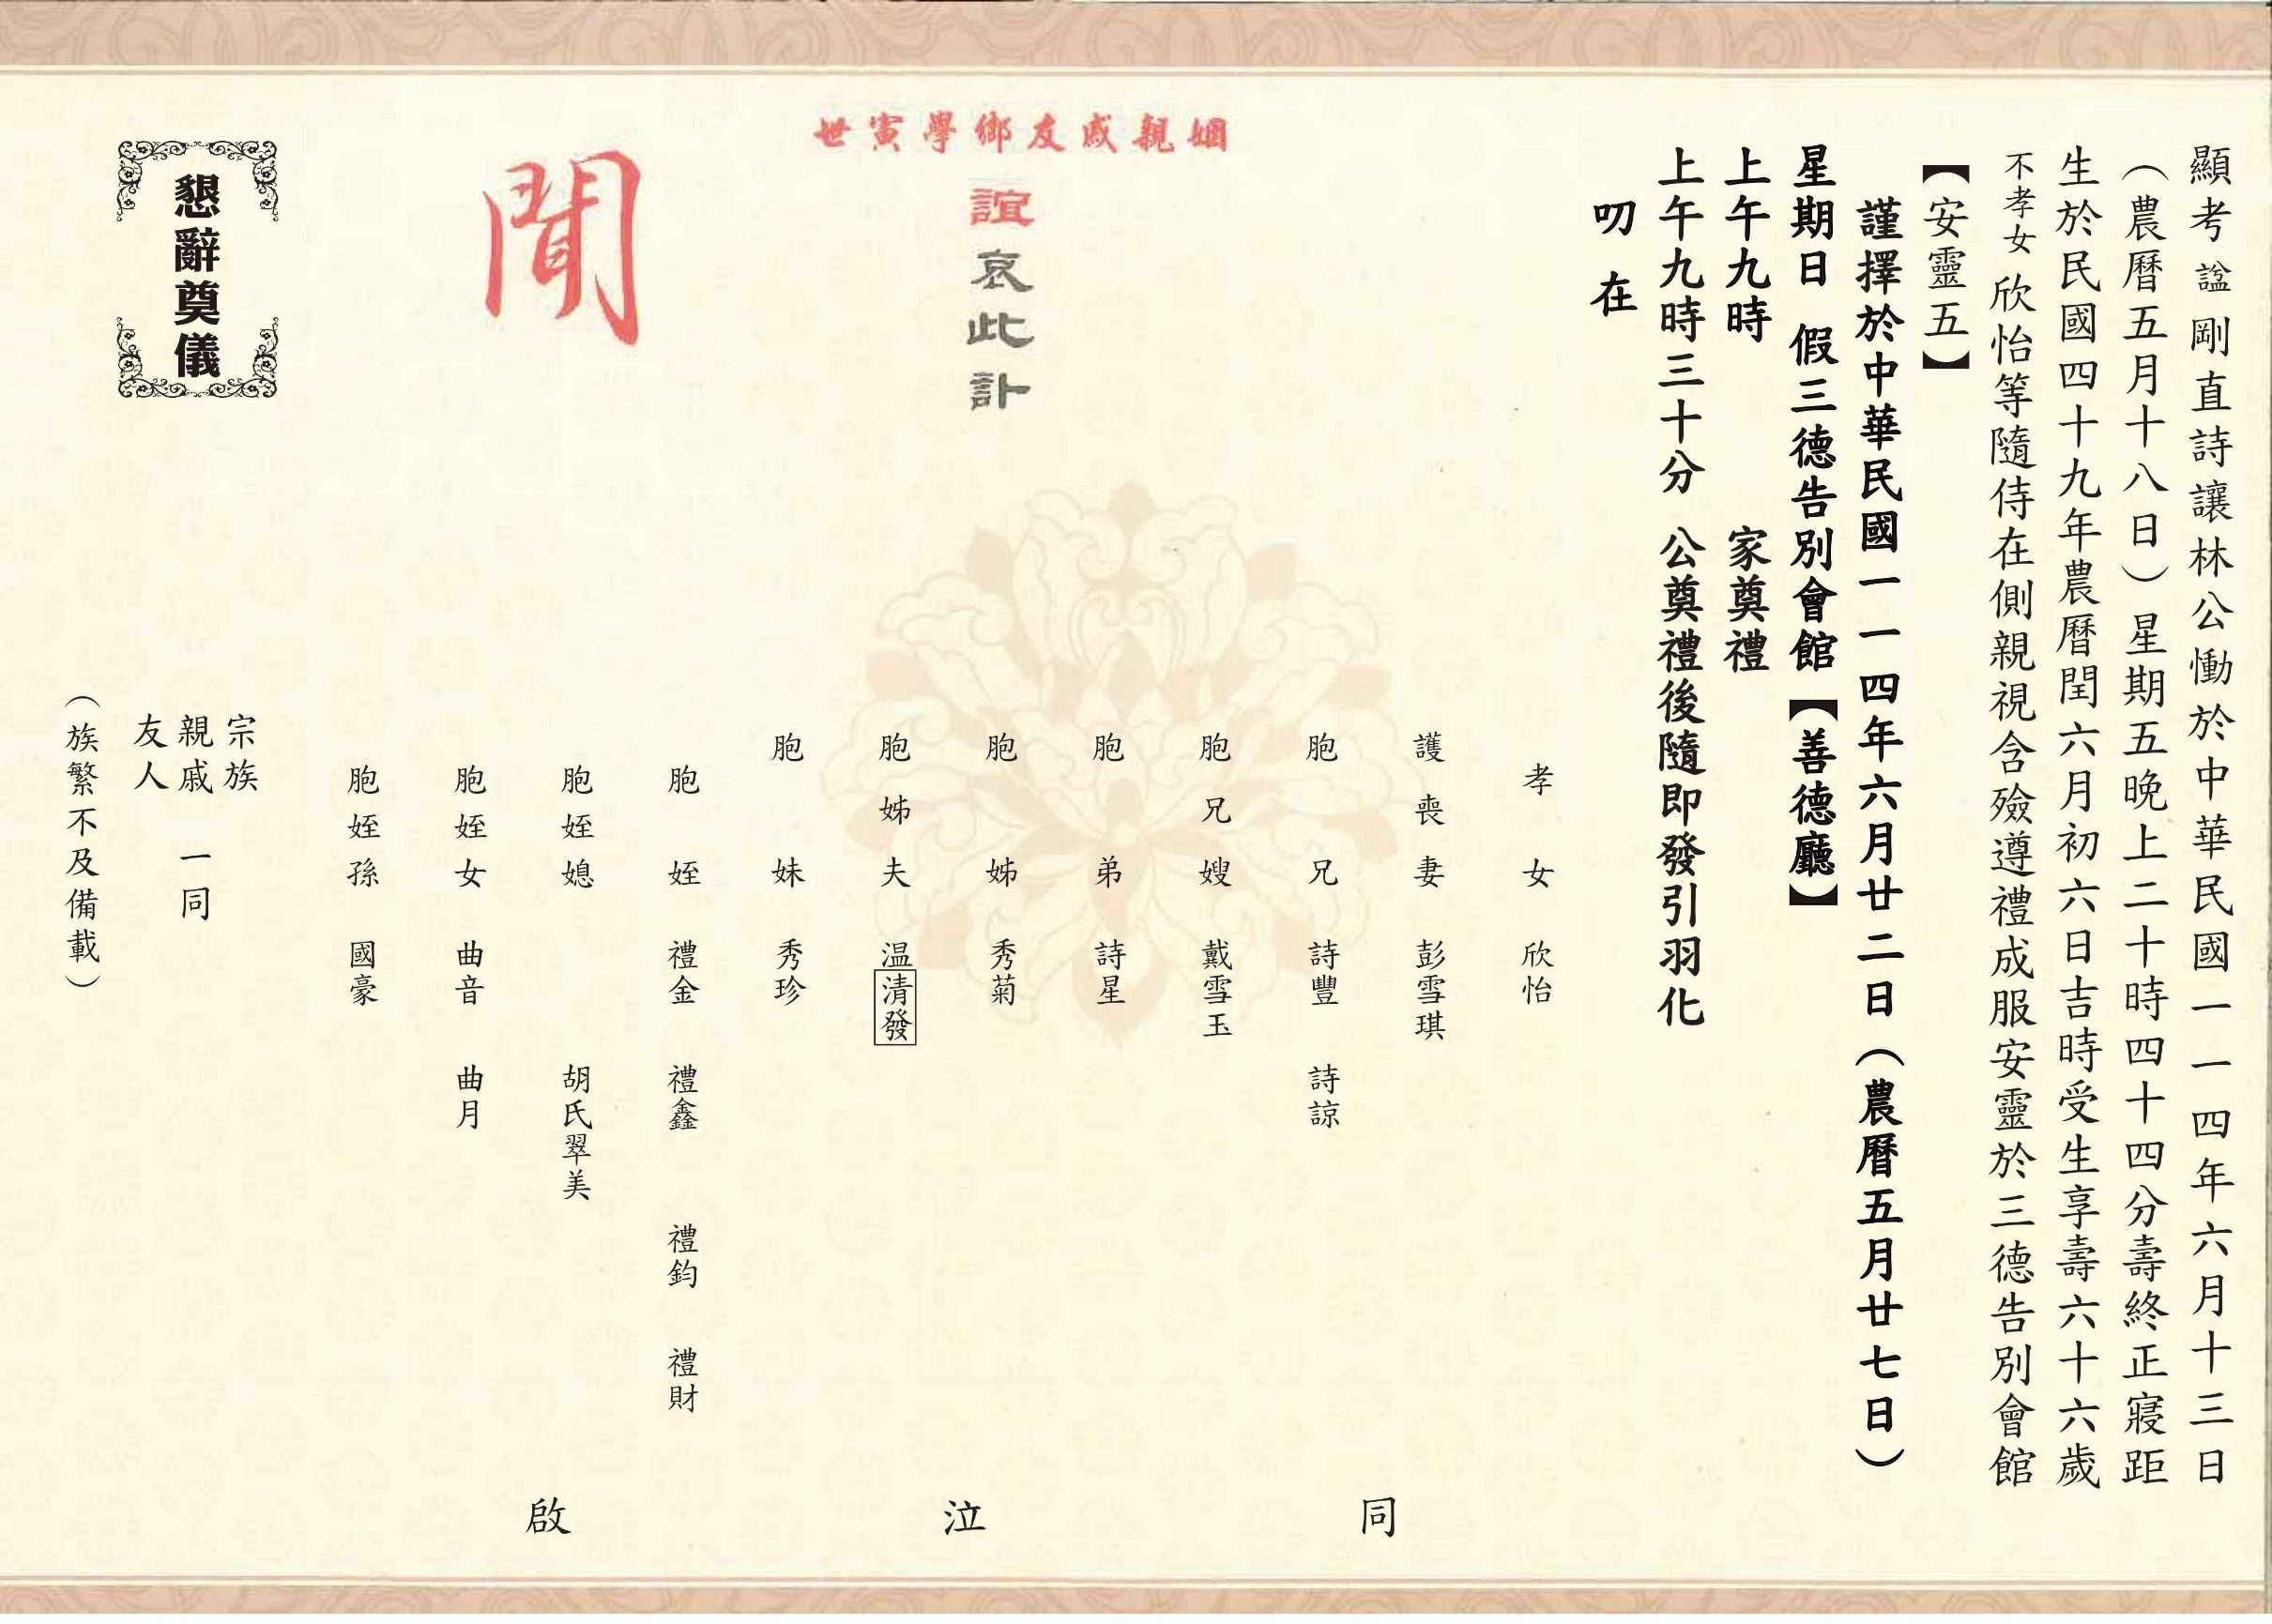 顯考 諡 剛直詩讓林公慟於中華民國一一四年六月十三日
（農曆五月十八日）星期五晚上二十時四十四分壽終正寢距
生於民國四十九年農曆閏六月初六日吉時受生享壽六十六歲
不孝女 欣怡等隨侍在側親視含殮遵禮成服安靈於三德告別會館
【安靈五】
謹擇於中華民國一一四年六月廿二日（農曆五月廿七日）
星期日 假三德告別會館【善德廳】
上午九時 家奠禮
上午九時三十分 公奠禮後隨即發引羽化
叨在
世寅學鄉友戚親姻
誼哀此訃
聞
孝女 欣怡
護喪妻 彭雪琪
胞兄 詩豐 詩諒
胞兄嫂 戴雪玉
胞弟 詩星
胞姊 秀菊
胞姊夫 温清發
胞妹 秀珍
胞姪 禮金 禮鑫 禮鈞 禮財
胞姪媳 胡氏翠美
胞姪女 曲音 曲月
胞姪孫 國豪
同泣啟
懇辭奠儀
宗族
親戚 一同
友人
（族繁不及備載）